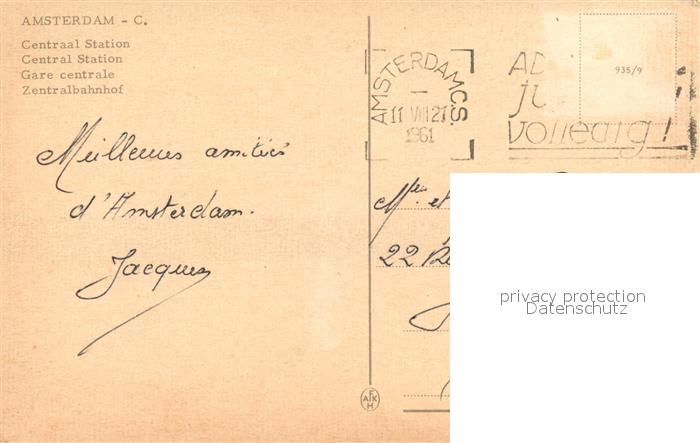 AMSTERDAM - C.
Centraal Station
Central Station
Gare centrale
Zentralbahnhof
AMSTERDAM C.S.
11 VIII 21
1961
volledig!
935/9
Meilleures amitiés
d'Amsterdam.
Jacques
Mr et
22
AFKH
privacy protection
Datenschutz